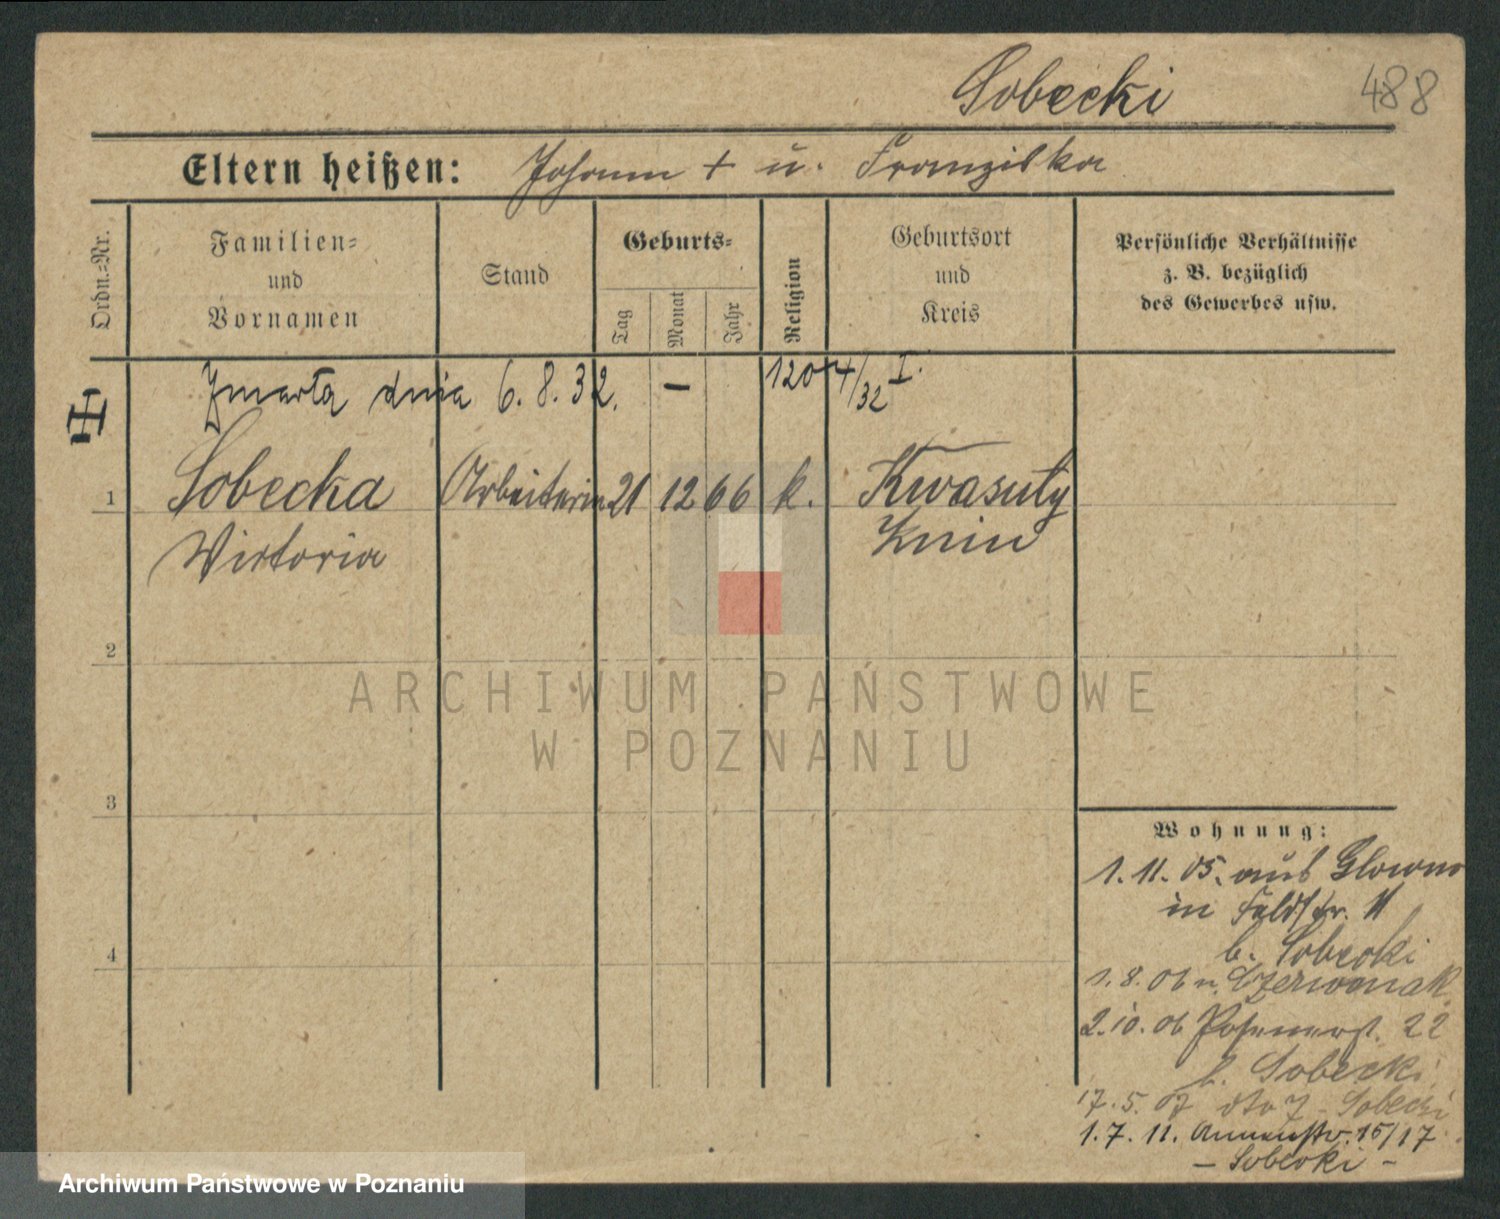 Sobecki
488
Eltern heißen: Johann + u. Franziska
Ordn.=Nr.
Familien=
und
Vornamen
Stand
Geburts=
Tag
Monat
Jahr
Religion
Geburtsort
und
Kreis
Persönliche Verhältnisse
z. B. bezüglich
des Gewerbes usw.
Zmarła dnia 6. 8. 32. — 1204/32 I.
1 Sobecka Arbeiterin 21 12 66 k. Kwasuty
Viktoria Znin
2
3
4
Wohnung:
1. 11. 05. aus Glowno
in Feldstr. 11
b. Sobecki
1. 8. 06 n. Czerwonak
2. 10. 06 Posenerst. 22
b. Sobecki
17. 5. 07 dto 7 - Sobecki
1. 7. 11. Annenstr. 15/17
– Sobecki –
ARCHIWUM PAŃSTWOWE
W POZNANIU
Archiwum Państwowe w Poznaniu